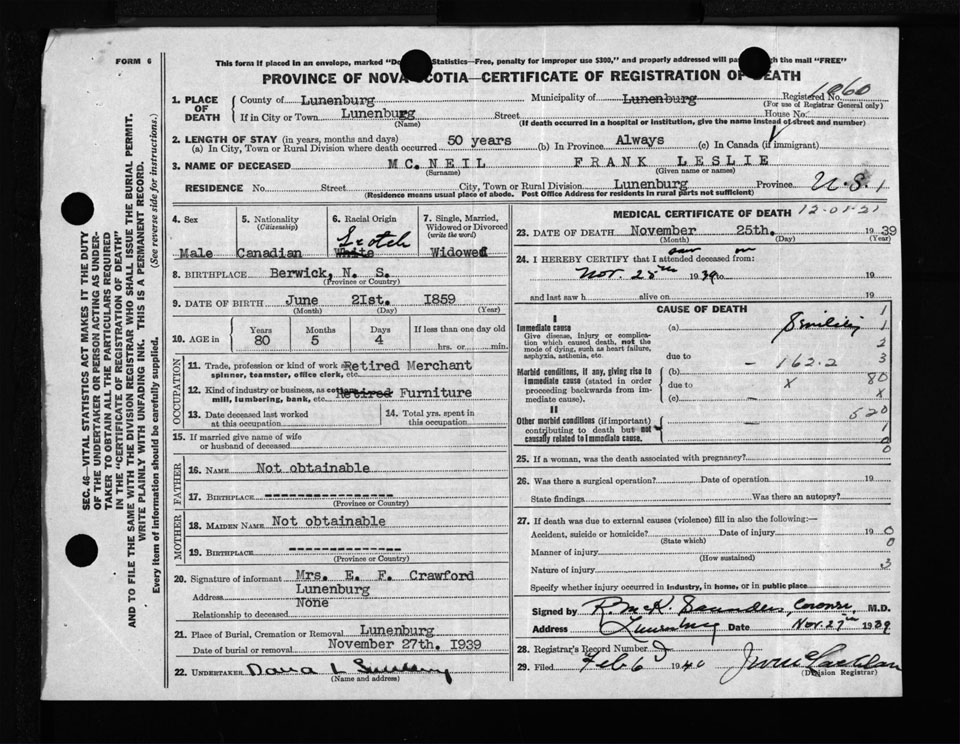 FORM 6
This form if placed in an envelope, marked "Do Statistics—Free, penalty for improper use $300," and properly addressed will pa through the mail "FREE"
PROVINCE OF NOVA SCOTIA—CERTIFICATE OF REGISTRATION OF DEATH
1. PLACE OF DEATH
County of Lunenburg Municipality of Lunenburg Registered No. 1060
(For use of Registrar General only)
If in City or Town Lunenburg Street House No.
(Name) (If death occurred in a hospital or institution, give the name instead of street and number)
2. LENGTH OF STAY (in years, months and days)
(a) In City, Town or Rural Division where death occurred 50 years (b) In Province Always (c) In Canada (if immigrant)
3. NAME OF DECEASED MC. NEIL FRANK LESLIE
(Surname) (Given name or names)
RESIDENCE No. Street City, Town or Rural Division Lunenburg Province N. S. 1
(Residence means usual place of abode. Post Office Address for residents in rural parts not sufficient)
4. Sex
Male
5. Nationality
(Citizenship)
Canadian
6. Racial Origin
Scotch
White
7. Single, Married,
Widowed or Divorced
(write the word)
Widowed
8. BIRTHPLACE Berwick, N. S.
(Province or Country)
9. DATE OF BIRTH June 21st. 1859
(Month) (Day) (Year)
10. AGE in
Years Months Days If less than one day old
80 5 4 hrs. or min.
OCCUPATION
11. Trade, profession or kind of work as Retired Merchant
spinner, teamster, office clerk, etc.
12. Kind of industry or business, as cotton Retired Furniture
mill, lumbering, bank, etc.
13. Date deceased last worked
at this occupation
14. Total yrs. spent in
this occupation
15. If married give name of wife
or husband of deceased
FATHER
16. NAME Not obtainable
17. BIRTHPLACE ---------------
(Province or Country)
MOTHER
18. MAIDEN NAME Not obtainable
19. BIRTHPLACE -------------
(Province or Country)
20. Signature of informant Mrs. E. F. Crawford
Address Lunenburg
Relationship to deceased None
21. Place of Burial, Cremation or Removal Lunenburg
Date of burial or removal November 27th. 1939
22. UNDERTAKER L
(Name and address)
MEDICAL CERTIFICATE OF DEATH 12-01-21
23. DATE OF DEATH November 25th. 1939
(Month) (Day) (Year)
24. I HEREBY CERTIFY that I attended deceased from:
saw on
Nov. 25th 1939 19
and last saw h alive on 19
CAUSE OF DEATH
I
Immediate cause
Give disease, injury or complication which caused death, not the mode of dying, such as heart failure, asphyxia, asthenia, etc.
(a) Senility
due to
Morbid conditions, if any, giving rise to immediate cause (stated in order proceeding backwards from immediate cause).
(b) — 162.2
due to x
(c) —
II
Other morbid conditions (if important) contributing to death but not causally related to immediate cause.
—
1
1
2
3
80
x
620
1
0
0
25. If a woman, was the death associated with pregnancy?
26. Was there a surgical operation? Date of operation 19
State findings Was there an autopsy?
27. If death was due to external causes (violence) fill in also the following:—
Accident, suicide or homicide? Date of injury 19 0
(State which) 0
Manner of injury
(How sustained)
Nature of injury 3
Specify whether injury occurred in industry, in home, or in public place
Signed by R. McK. Saunders, Coroner, M.D.
Address Lunenburg Date Nov. 27th 1939
28. Registrar's Record Number
29. Filed Feb 6 1940
(Division Registrar)
SEC. 46—VITAL STATISTICS ACT MAKES IT THE DUTY
OF THE UNDERTAKER OR PERSON ACTING AS UNDER-
TAKER TO OBTAIN ALL THE PARTICULARS REQUIRED
IN THE "CERTIFICATE OF REGISTRATION OF DEATH"
AND TO FILE THE SAME WITH THE DIVISION REGISTRAR WHO SHALL ISSUE THE BURIAL PERMIT.
WRITE PLAINLY WITH UNFADING INK. THIS IS A PERMANENT RECORD.
Every item of information should be carefully supplied. (See reverse side for instructions.)